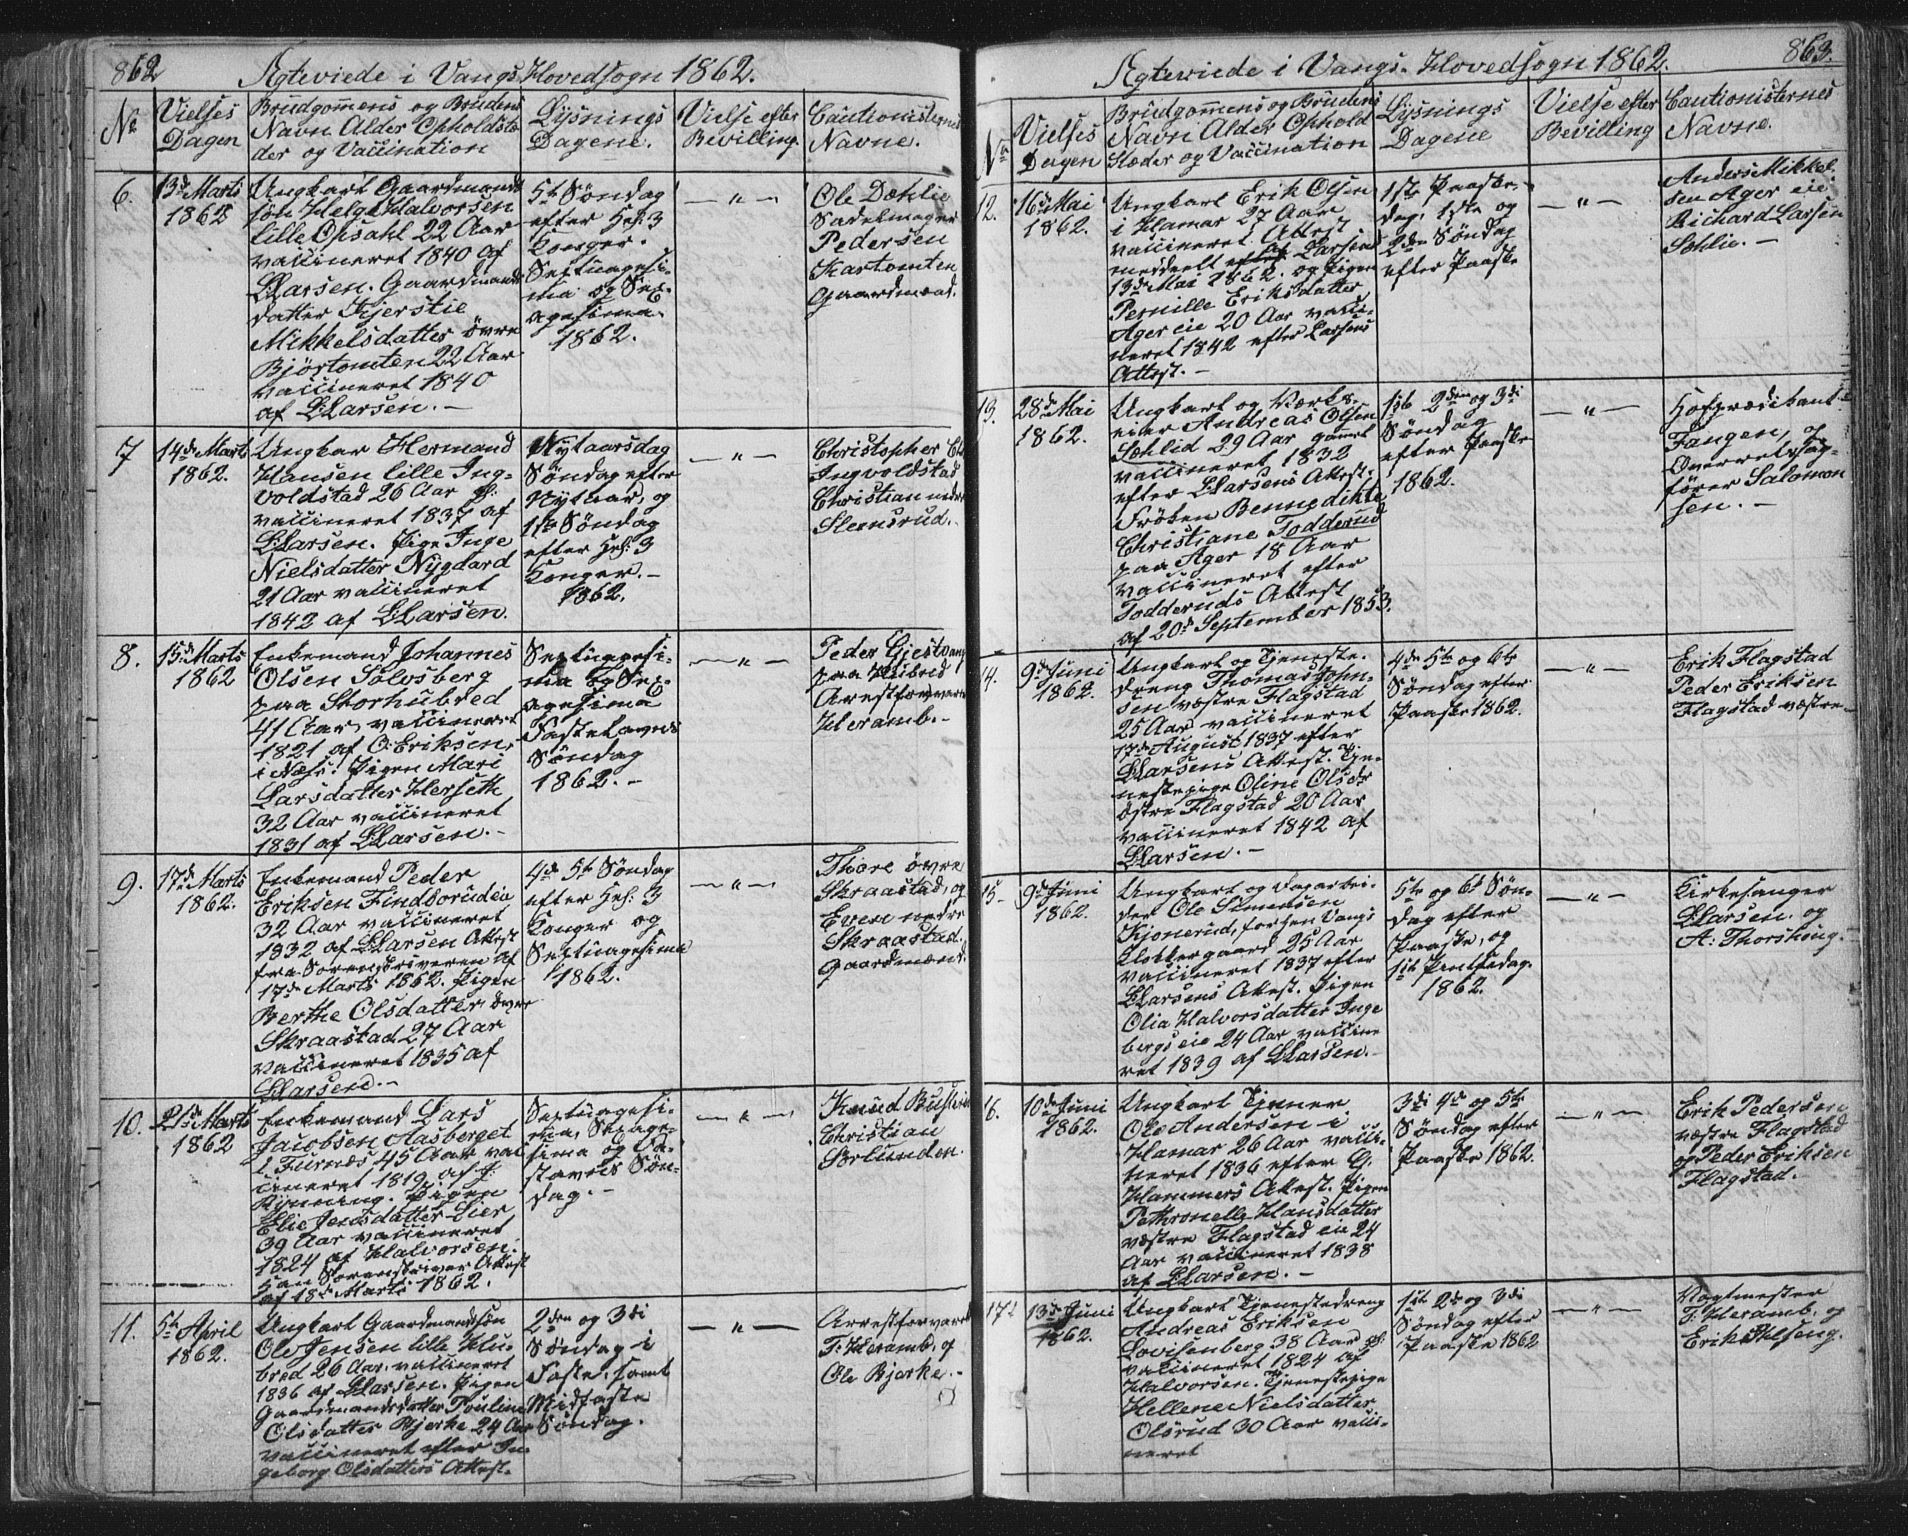 862
Ægteviede i Vangs Hovedsogn 1862.
No
Vielses
Dagen
Brudgommens og Brudens
Navn Alder Opholdste
der og Vaccination
Lysnings
Dagene.
Vielse efter
Bevilling.
Cautionisternes
Navne.
6.
13de Marts
1862
Ungkarl Gaardmands
søn Helge Halvorsen
lille Opsahl 22 Aar
vaccineret 1840 af
L Larsen. Gaardmands
datter Kjerstie
Mikkelsdatter øvre
Bjørtomten 22 Aar
vaccineret 1840
af L Larsen. –
5te Søndag
efter Hel: 3
Konger.
Septuagesi-
ma og Sex-
agesima
1862.
— " —
Ole Dæhlie
Sadelmager
Pedersen
Kartomten
Gaardmænd.
7
14de Marts
1862.
Ungkar Hermand
Hansen lille Ing-
voldstad 26 Aar g:
vaccineret 1837 af
L Larsen. Pige Inge
Nielsdatter Nygaard
21 Aar vaccineret
1842 af L Larsen.
Nytaarsdag
Søndag efter
Nytaar, og
1ste Søndag
efter Hel: 3
Konger. –
1862.
— " —
Christopher
Ingvoldstad
Christian nedre
Steensrud. –
8.
15de Marts
1862
Enkemand Johannes
Olsen Solvsberg
paa Storhubred
41 Aar, vaccineret
1821 af O: Eriksen,
i Næss. Pigen Mari
Larsdatter Herseth
32 Aar vaccineret
1831 af L Larsen. –
Septuagesi-
ma og Sex-
agesima
Fastelavns
Søndag
1862. –
— " —
Peder Gjestvang
paa Hubred
Arestforvarer
Heramb. –
9.
17de Marts
1862.
Enkemand Peder
Eriksen Findsorudeie
32 Aar vaccineret
1832 af L Larsen Attest
fra Sorenskriveren af
17de Marts 1862. Pigen
Berthe Olsdatter øvre
Skraastad 27 Aar
vaccineret 1835 af
L Larsen. –
4de 5te Søndag
efter Hel: 3
Konger og
Septuagesima
1862.
— " —
Thore øvre
Skraastad, og
Even nedre
Skraastad.
Gaardmænd.
10.
21de Marts
1862
Enkemand Lars
Jacobsen Aasberget
i Furnæs 45 Aar vac
cineret 1819 af J.
Rynning. Pigen
Elie Jensdatter Lier
39 Aar vaccineret
1824 af Halvorsen.
Han Sorenskriver Attest
af 18de Marts 1862.
Septuagesi-
ma, Sexage-
sima og Fa-
stavns Søn-
dag. –
— " —
Knud
Christian
Brunden.
11.
5te April
1862.
Ungkarl Gaardmandssøn
Ole Jensen lille Hu-
bred 26 Aar, vaccineret
1836 af L Larsen. Pigen
Gaardmandsdatter Pauline
Olsdatter Bjerke 24 Aar
vaccineret efter In-
geborg Olsdatters Attest.
2den og 3di
Søndag i
Faste, samt
Midfaste
Søndag.
— " —
Arrestforvarer
F: Heramb, og
Ole Bjerke. –
863.
Ægteviede i Vangs. Hovedsogn 1862.
No
Vielses
Dagen
Brudgommens og Brudens
Navn Alder Ophold
Stæder og Vaccination
Lysnings
Dagene
Vielse efter
Bevilling
Cautionisternes
Navne.
12.
16de Mai
1862.
Ungkarl Erik Olsen
i Hamar 27 Aar
vaccineret. Attest
meddeelt af Larsens
13de Mai 1862. og Pigen
Pernille Eriksdatter
Ager eie 20 Aar vacci-
neret 1842 efter Larsens
Attest. –
1ste Paaske-
dag, 1ste og
2den Søndag
efter Paaske
— " —
Anders Mikkel-
sen Ager eie
Richard Larsen
Sohlie. –
13.
28de Mai
1862.
Ungkarl og Værks-
eier Andreas Olsen
Sohlid 29 Aar gammel
vaccineret 1832
efter L Larsens Attest.
Frøken Bennedikte
Christiane Todderud
paa Ager 18 Aar
vaccineret efter
Todderuds Attest
af 20de September 1853.
1ste 2den og 3di
Søndag
efter Paaske
1862.
— " —
Hofprædikant
Fangen, og
Overretssag-
fører Salomon
sen. –
14.
9de Juni
1862.
Ungkarl og Tjeneste-
dreng Thomas John-
sen væstre Flagstad
25 Aar vaccineret
17de August 1837 efter
L Larsens Attest. Tje-
nestepige Oline Olsdr
østre Flagstad 20 Aar
vaccineret 1842 af
L Larsen. –
4de 5te og 6te
Søndag efter
Paaske 1862.
— " —
Erik Flagstad
Peder Eriksen
Flagstad væstre –
15
9de Juni
1862.
Ungkarl og Dagarbei-
der Ole Simensen
Kjonerud, forhen Vangs
Klokkergaard 25 Aar
vaccineret 1837 efter
L Larsens Attest. Pigen
Olia Halvorsdatter Inge
bergs eie 24 Aar vaccine
ret 1839 af L Larsen. –
5te og 6te Søn-
dag efter
Paaske, og
1ste Pintsedag.
1862.
— " —
Kirkesanger
L Larsen og
A: Thorshoug.
16.
10de Juni
1862.
Ungkarl Tjener
Ole Andersen i
Hamar 26 Aar vacci-
neret 1836 efter G.
Hammers Attest. Pigen
Pethronelle Hansdatter
væstre Flagstad eie 24
Aar vaccineret 1838
af L Larsen. –
3di 4de og 5te
Søndag efter
Paaske 1862.
— " —
Erik Pedersen
væstre Flagstad
og Peder Eriksen
Flagstad.
17.
13de Juni
1862.
Ungkarl Tjenestedreng
Andreas Eriksen
Lovisenberg 38 Aar gl:
vaccineret 1824 af
Halvorsen. Tjenestepige
Hellene Nielsdatter
Olsrud 30 Aar vacci-
neret
1ste 2de og 3di
Søndag efter
Paaske 1862
— " —
Vagtmester
F. Heramb. og
Erik Helseng.